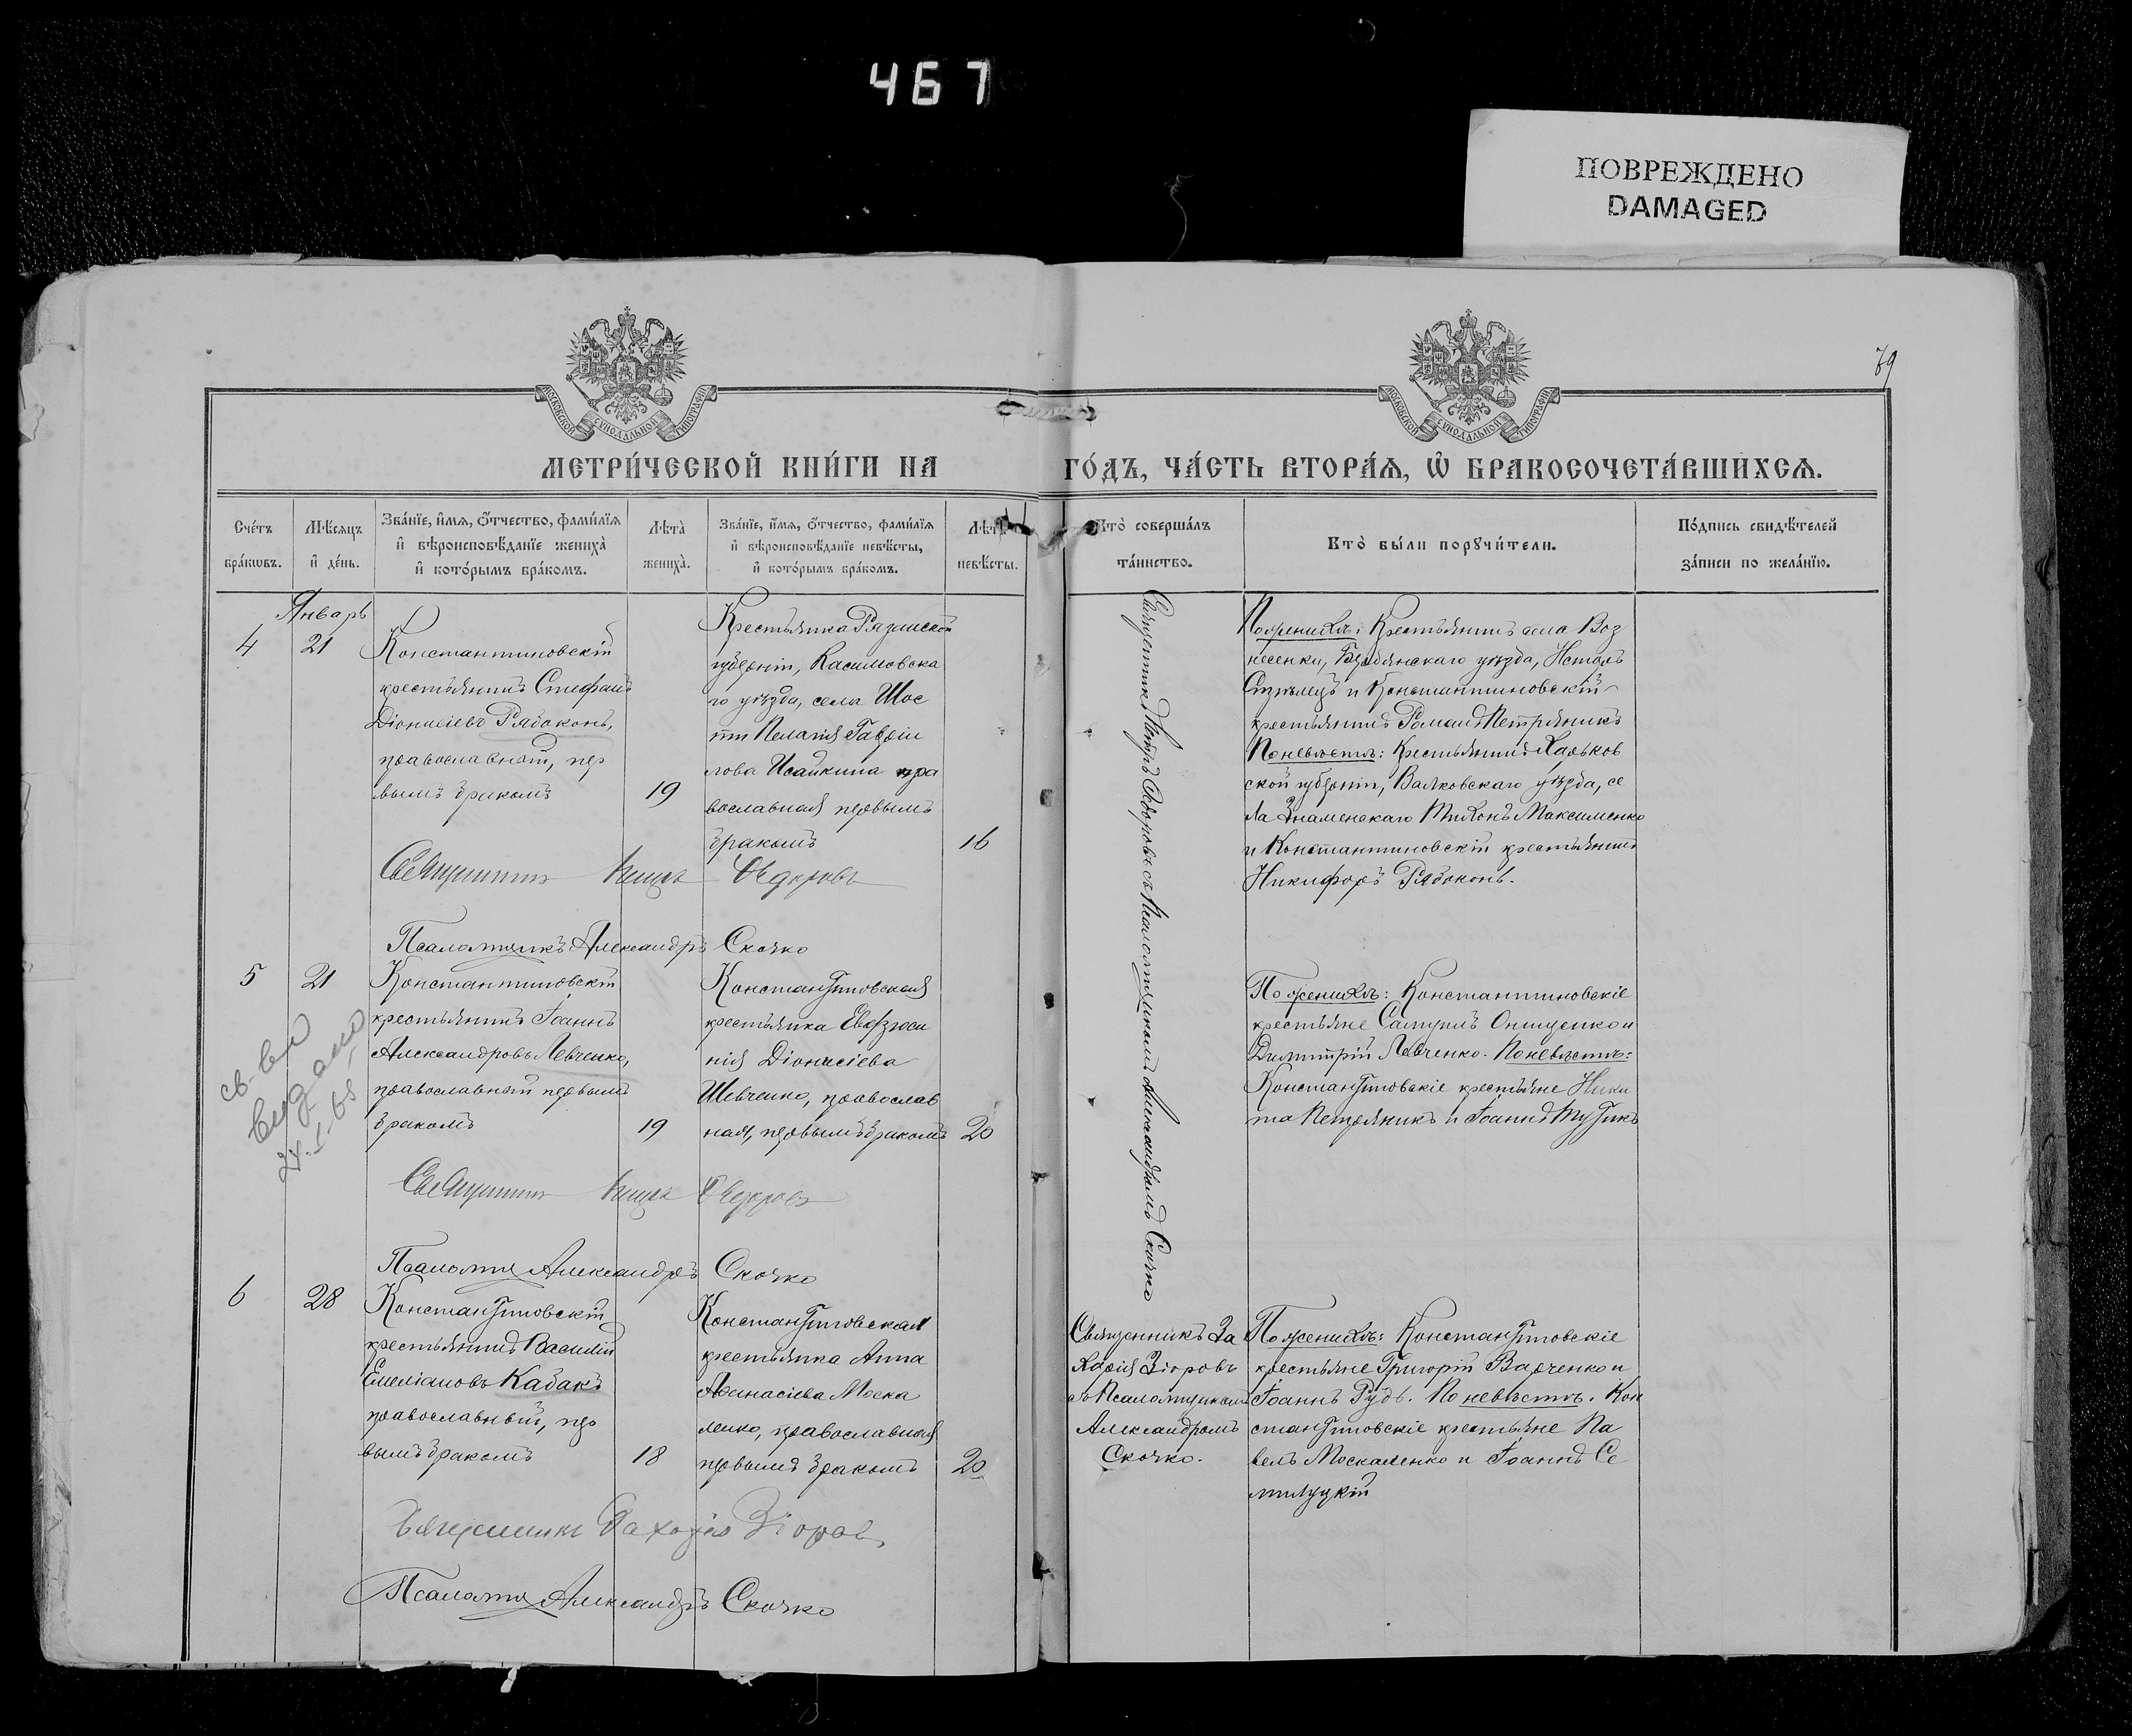 467
ПОВРЕЖДЕНО
DAMAGED
79
МОСКОВСКОЙ СѴНОДАЛЬНОЙ ТИПОГРАФІИ
МОСКОВСКОЙ СѴНОДАЛЬНОЙ ТИПОГРАФІИ
МЕТРИ́ЧЕСКОЙ КНИ́ГИ НА ГО́ДЪ, ЧА́СТЬ ВТОРА́Ѧ, Ѽ БРАКОСОЧЕТА́ВШИХСѦ.
Сче́тъ бра́кѡвъ.
Мѣ́сяцъ и҆ де́нь.
Зва́нїе, и҆́мѧ, ѻ҆́тчество, фами́лїѧ
и҆ вѣроисповѣ́данїе жениха̀
и҆ кото́рымъ бра́комъ.
Лѣта̀ жениха̀.
Зва́нїе, и҆́мѧ, ѻ҆́тчество, фами́лїѧ
и҆ вѣроисповѣ́данїе невѣ́сты,
и҆ кото́рымъ бра́комъ.
Лѣта̀ невѣ́сты.
Кто̀ соверша́лъ
та́инство.
Кто̀ бы́ли порꙋчи́тели.
По́дпись свидѣ́телей
за́писи по жела́нїю.
Январь
4
21
Константиновскій
крестьянинъ Стефанъ
Діонисіевъ Рябоконь,
православный, пер
вымъ бракомъ
19
Крестьянка Рязанской
губерніи, Касимовска
го уѣзда, села Шос
ти Пелагія Гавріи
лова Исайкина пра
вославная первымъ
бракомъ
16
Священникъ Петръ Ѳедоровъ съ Псаломщикомъ Александромъ Скочко
По женихѣ: Крестьянинъ села Воз
несенки, Бердянскаго уѣзда, Несторъ
Стрѣлецъ и Константиновскій
крестьянинъ Романъ Петряникъ
По невѣстѣ: Крестьянинъ Харьков
ской губерніи, Валковскаго уѣзда, се
ла Знаменскаго Тихонъ Максименко
и Константиновскій крестьянинъ
Никифоръ Рябоконь.
Священникъ Петръ Ѳедоровъ
Псаломщикъ Александръ Скочко
5
21
Константиновскій
крестьянинъ Іоаннъ
Александровъ Левченко,
православный первымъ
бракомъ
19
Константиновская
крестьянка Евфроси
нія Діонисіева
Шевченко, православ
ная, первымъ бракомъ
20
По женихѣ: Константиновскіе
крестьяне Самуилъ Онищенко и
Димитрій Левченко. По невѣстѣ:
Константиновскіе крестьяне Ники
та Петряникъ и Іоаннъ
св-во
выдано
Священникъ Петръ Ѳедоровъ
Псаломщ Александръ Скочко
6
28
Константиновскій
крестьянинъ Василій
Емеліановъ Кабакъ
православный, пер
вымъ бракомъ
18
Константиновская
крестьянка Анна
Аѳанасіева Моска
ленко, православная
первымъ бракомъ
20
Священникъ За
харія Зіоровъ
съ Псаломщикомъ
Александромъ
Скочко.
По женихѣ: Константиновскіе
крестьяне Григорій Варченко и
Іоаннъ Рудь. По невѣстѣ. Кон
стантиновскіе крестьяне Па
велъ Москаленко и Іоаннъ Се
милуцкій
Священникъ Захарія Зіоровъ
Псаломщ Александръ Скочко